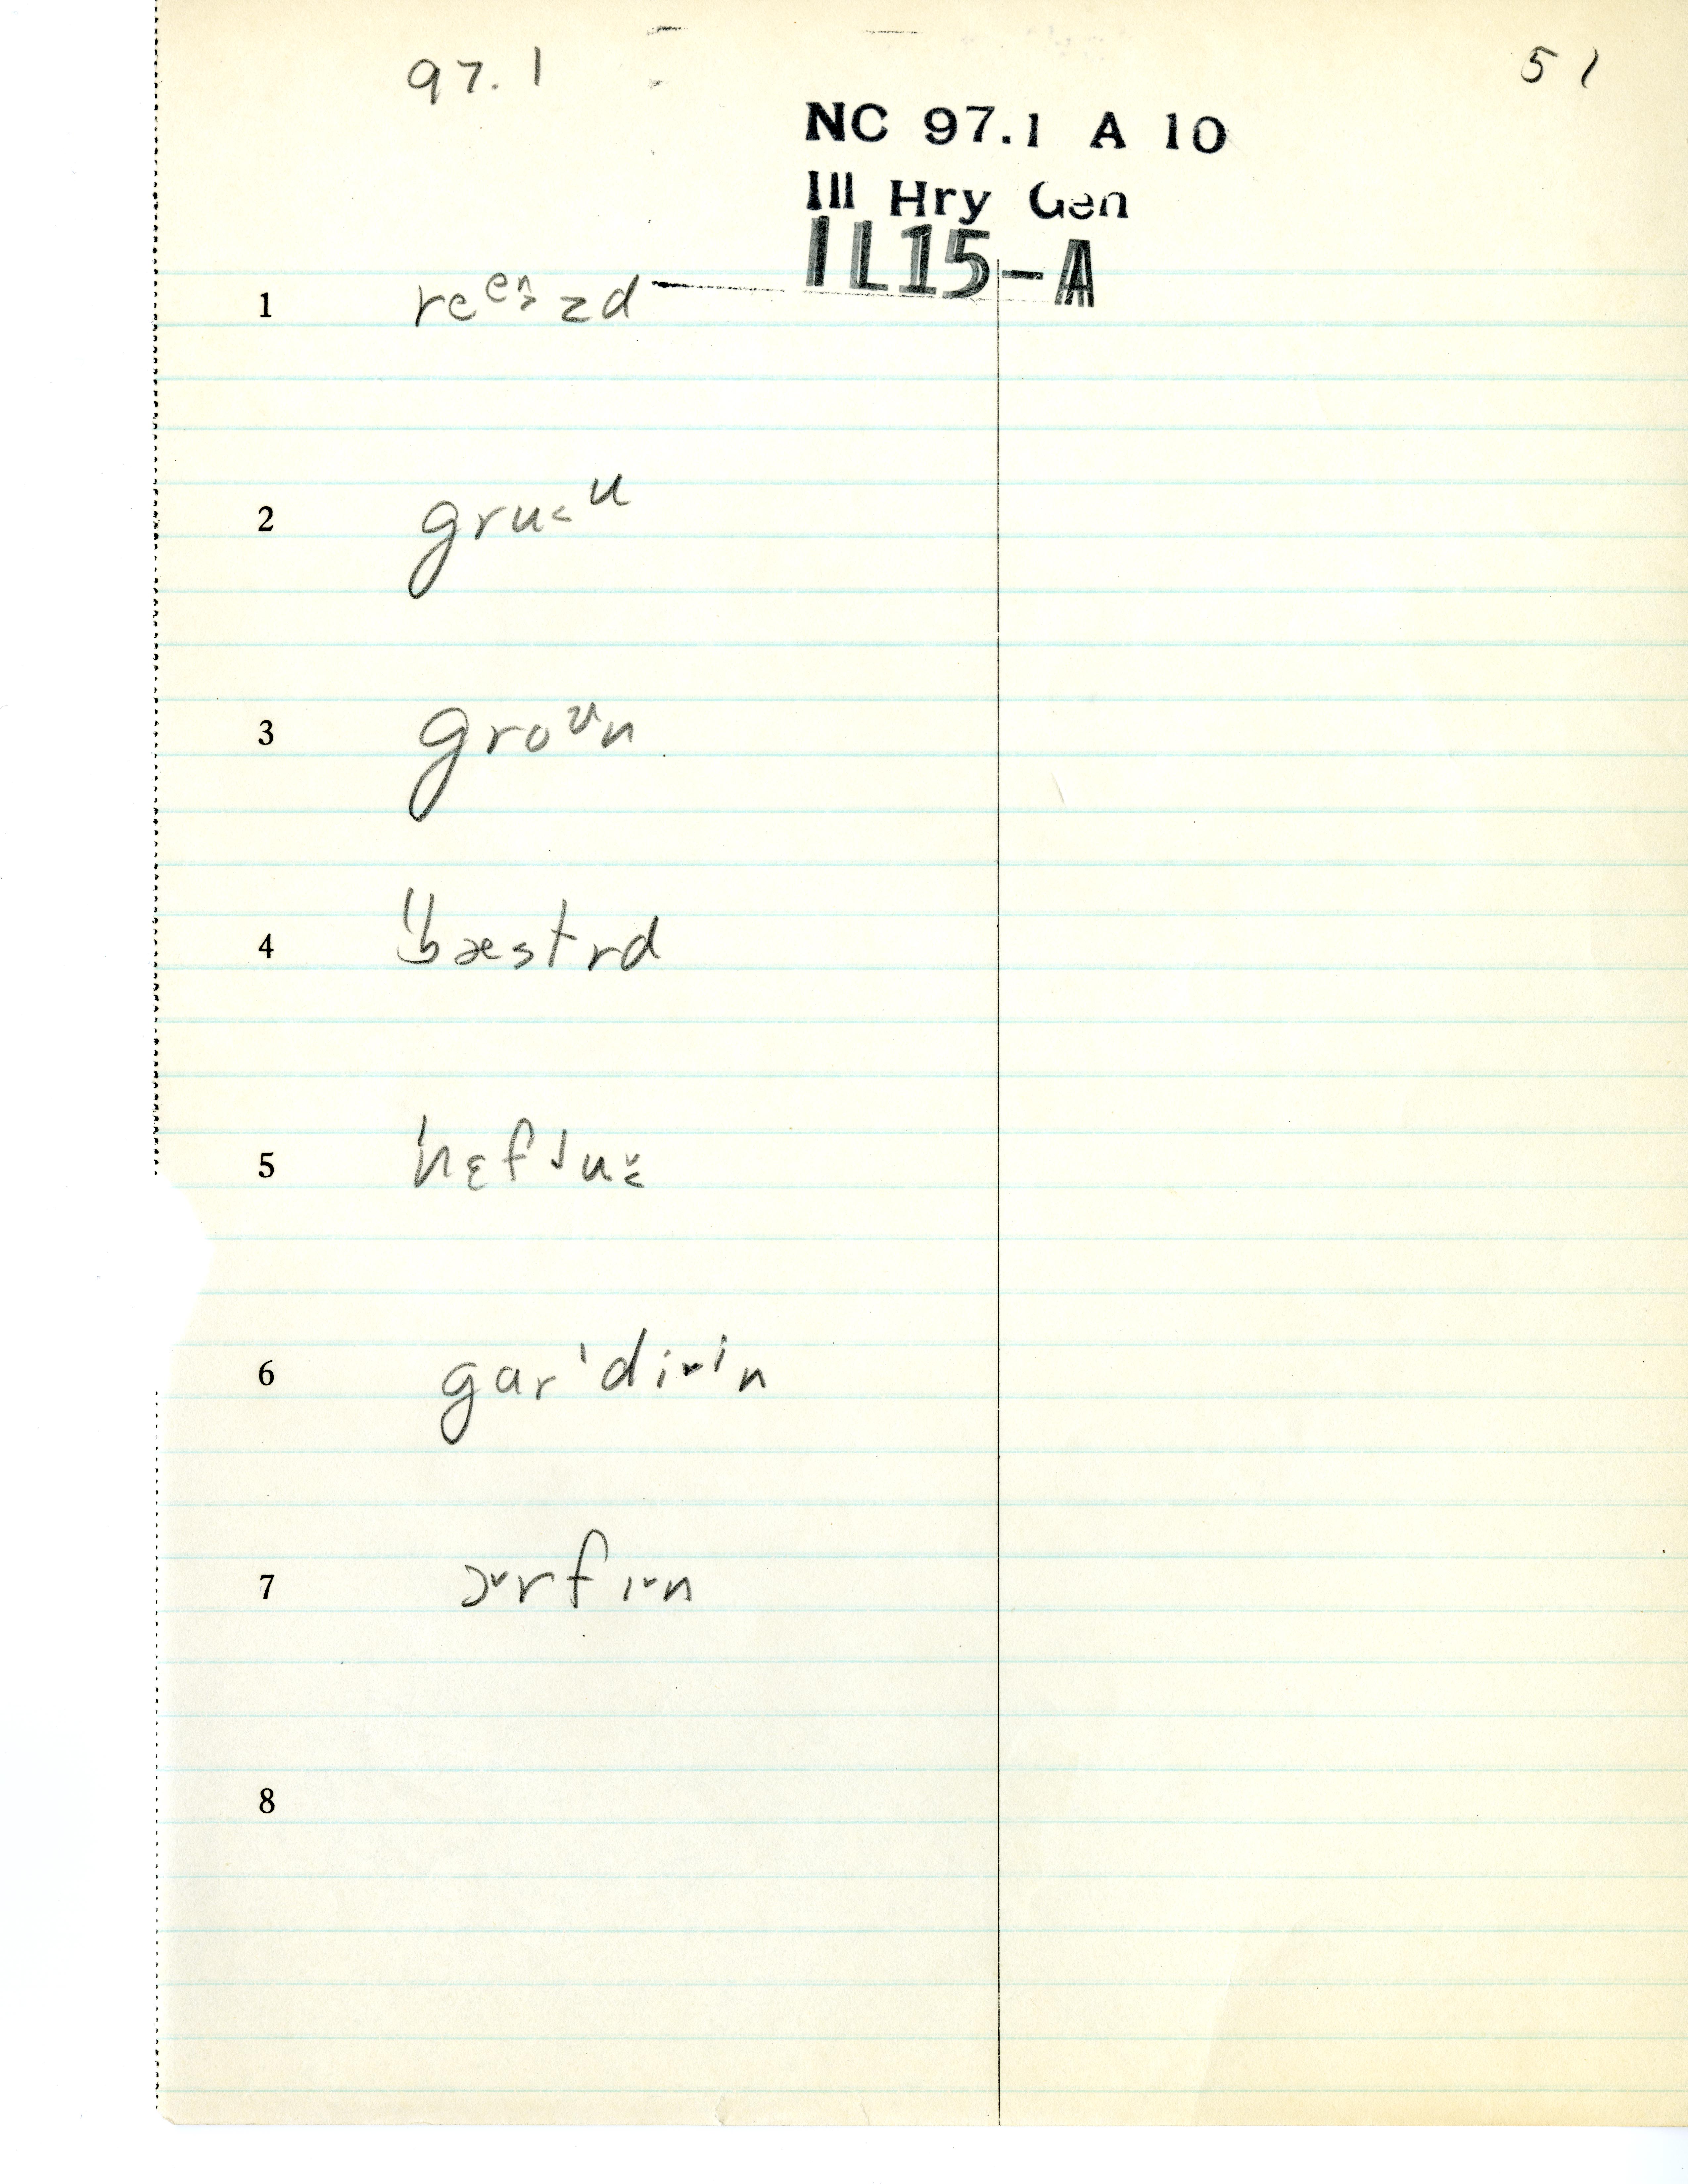 97.1 51
NC 97.1 A 10
Ill Hry Gen
IL15-A
1 reeᶺzd
2 gru˂ᵘ
3 groᶷn
4 ˈˈbæstrd
5 ˈnɛfJu˂̌
6 garˈdɪ˅ɪn
7 ɔ˅rfɪ˅n
8